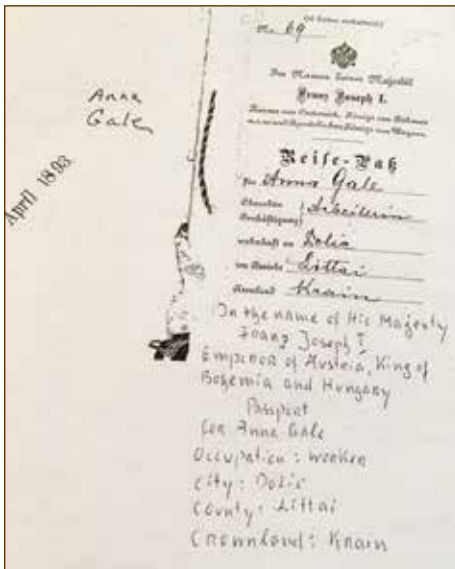 Anna
Gale
April 1893
No. 69
Im Namen Seiner Majestät
Franz Joseph I.
Kaisers von Österreich, Königs von Böhmen
Reise-Paß
für Anna Gale
Charakter
Beschäftigung } Arbeiterin
wohnhaft zu Dolis
im Bezirke Littai
Kronland Krain
In the name of His Majesty
Franz Joseph I
Emperor of Austria, King of
Bohemia and Hungary
Passport
for Anna Gale
Occupation: worker
City: Dolis
County: Littai
Crownland: Krain